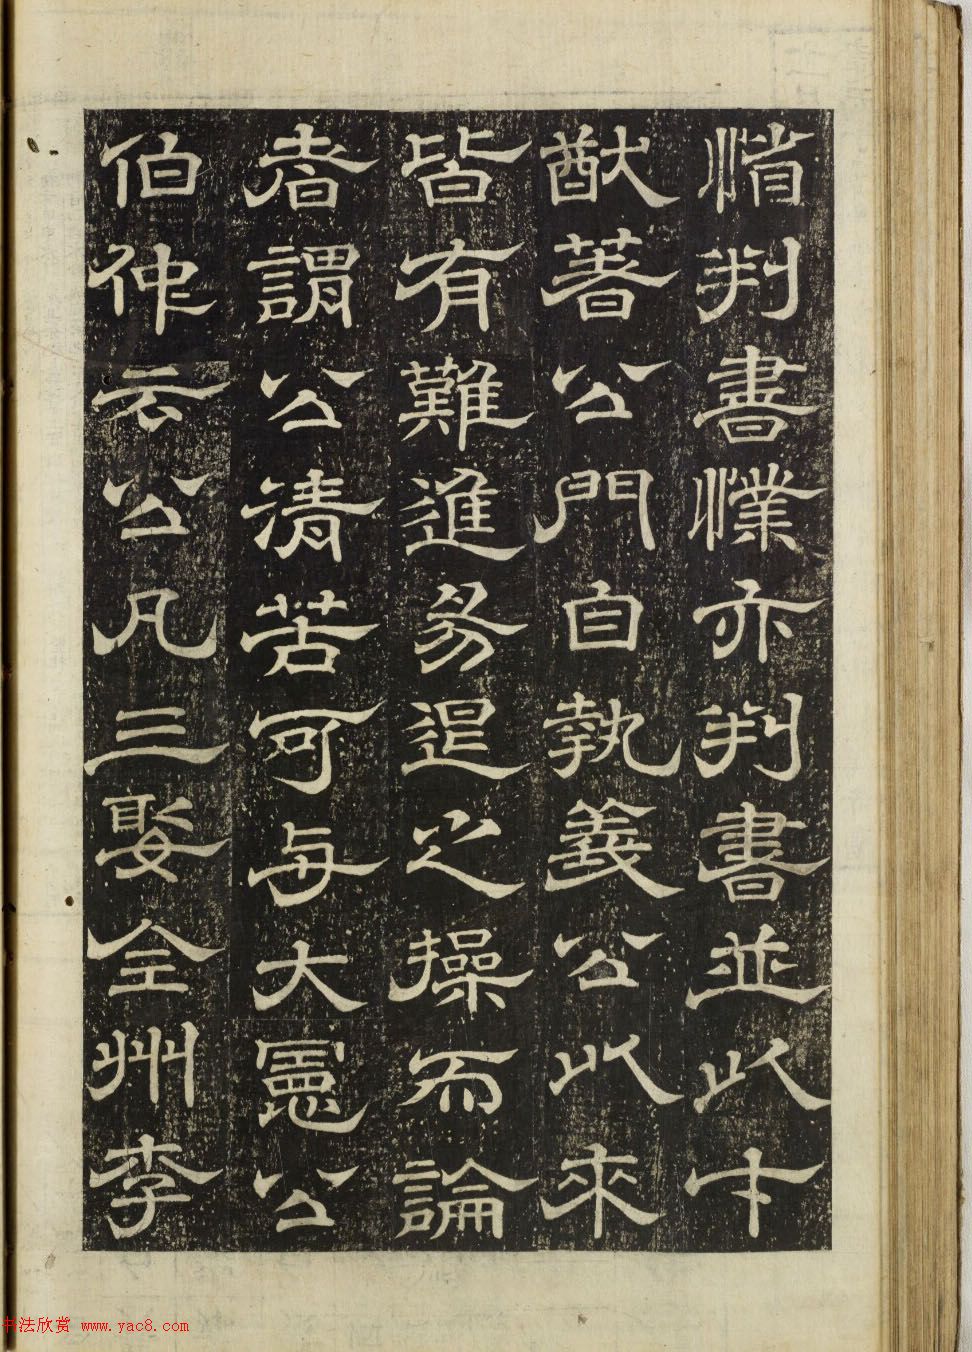 㥠判書㦨亦判書並以才
猷著公門自執義公以來
皆有難進易退之操而論
者謂公清苦可与大憲公
伯仲云公凡三娶全州李
书法欣赏 www.yac8.com